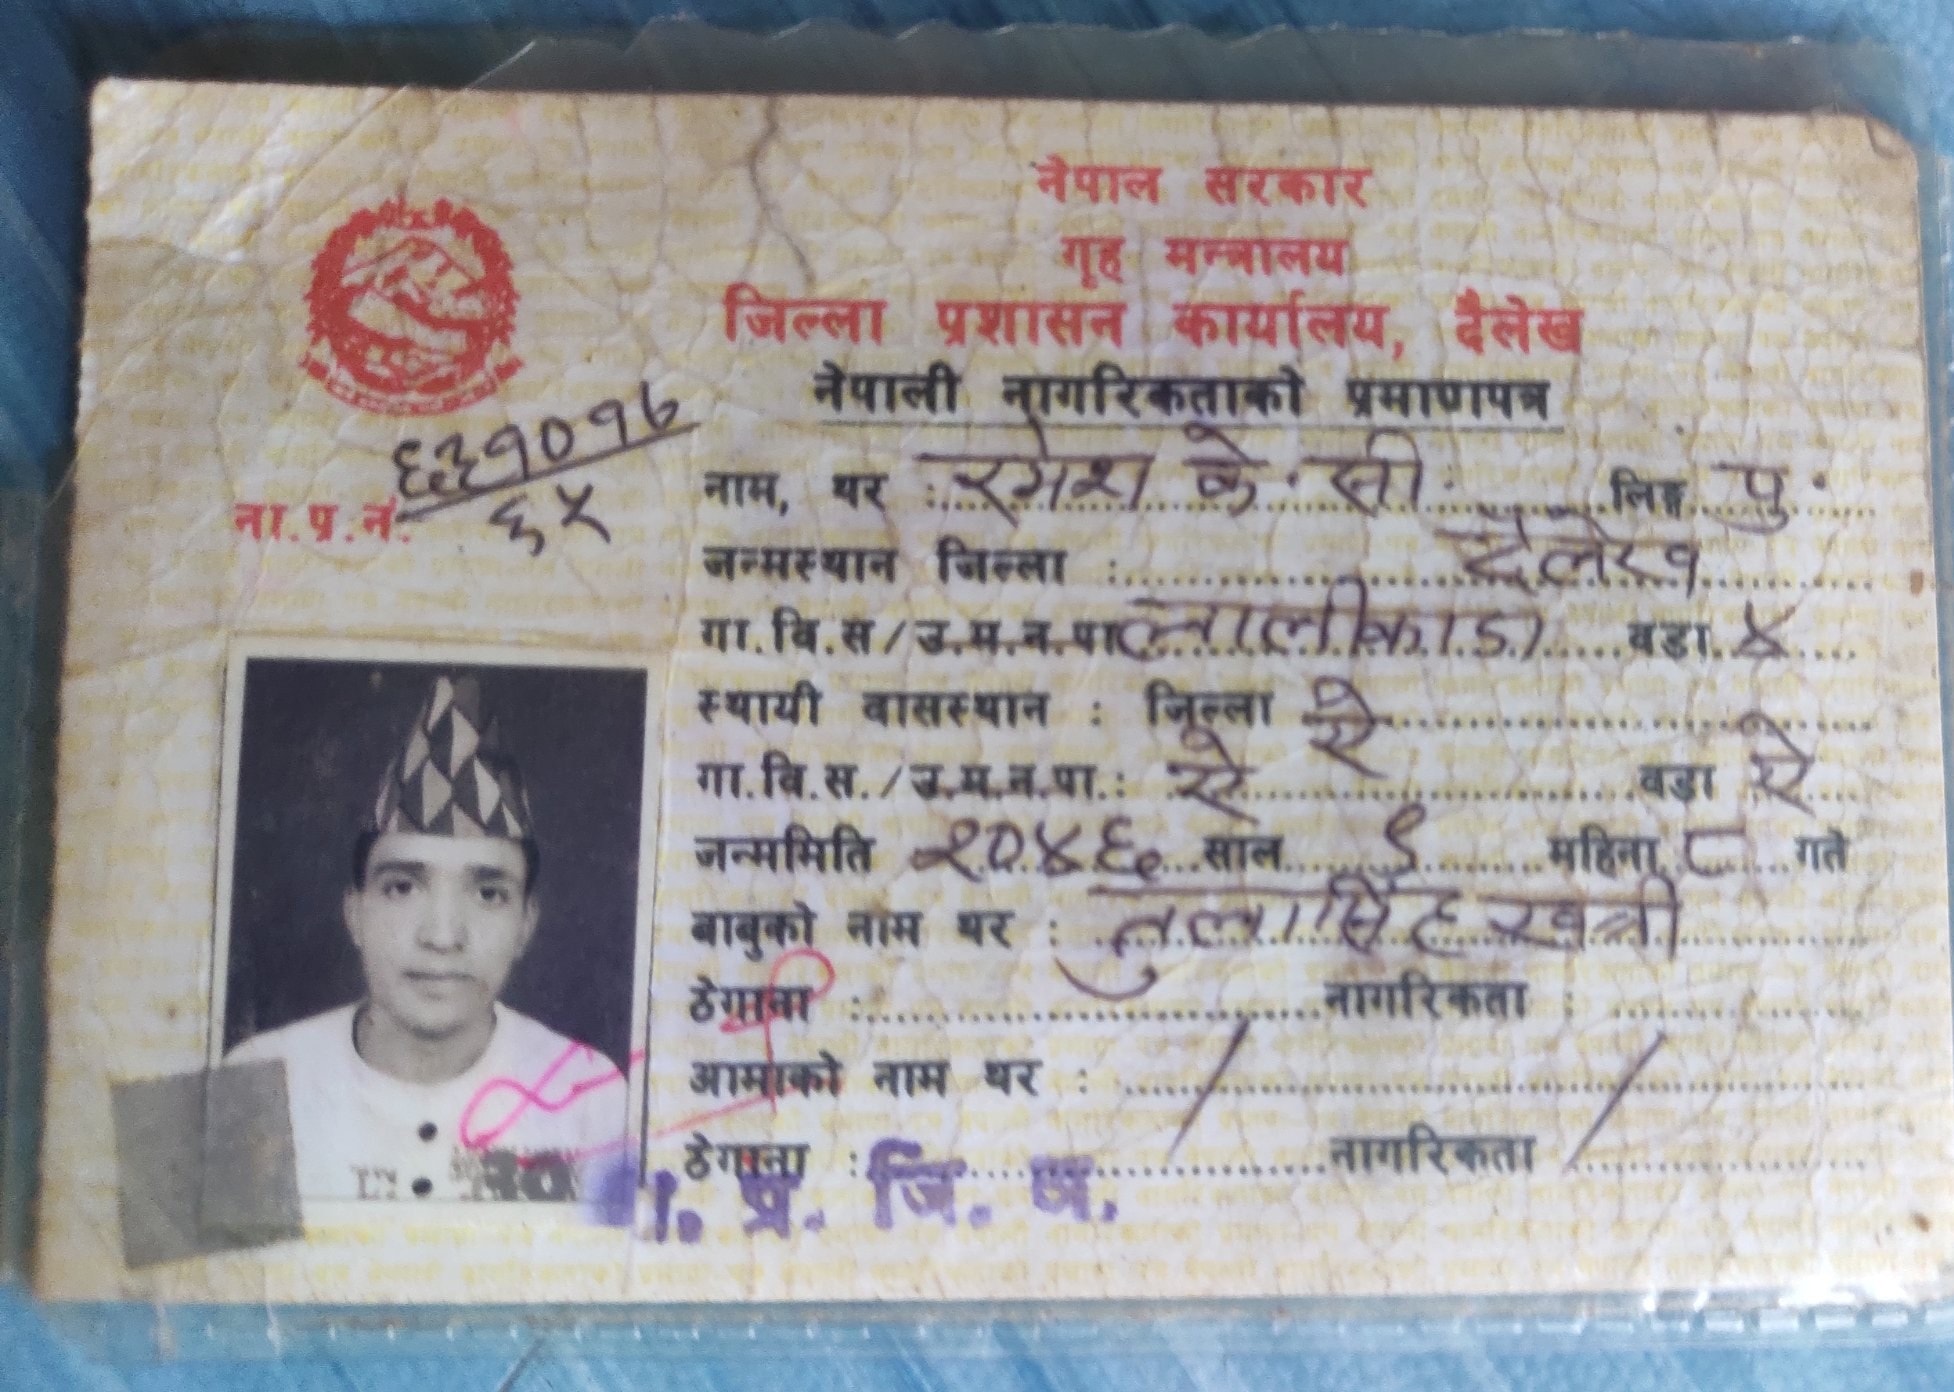 नेपाल सरकार
गृह मन्त्रालय
जिल्ला प्रशासन कार्यालय, दैलेख
नेपाली नागरिकताको प्रमाणपत्र
ना.प्र.नं. ६३१०१७/६५
नाम, थर : रमेश के. सी. लिङ्ग पु.
जन्मस्थान जिल्ला : दैलेख
गा.वि.स/उ.म.न.पा. लालीकाडा वडा ४
स्थायी वासस्थान : जिल्ला ऐ
गा.वि.स./उ.म.न.पा.: ऐ वडा ऐ
जन्ममिति २०४६ साल ९ महिना ८ गते
बाबुको नाम थर : तुलासिंह खत्री
ठेगाना : नागरिकता :
आमाको नाम थर : /
ठेगाना : नागरिकता /
प्र. जि. अ.